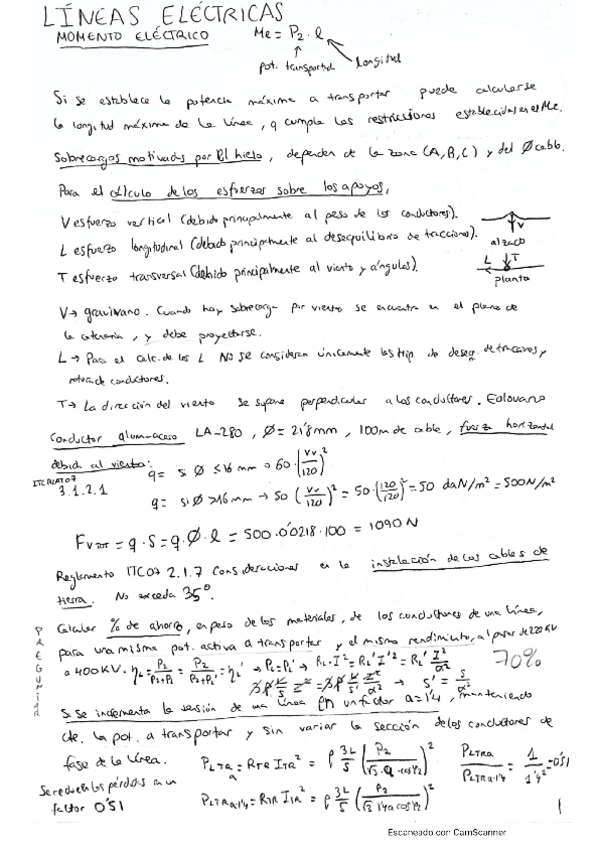 LÍNEAS ELÉCTRICAS
MOMENTO ELÉCTRICO Me = P₂ · l
pot. transportad longitud
Si se establece la potencia máxima a transportar puede calcularse
la longitud máxima de la línea, q cumpla las restricciones establecidas en el Me.
Sobrecargas motivadas por El hielo, dependen de la zona (A, B, C) y del Ø cable.
Para el cálculo de los esfuerzos sobre los apoyos,
V esfuerzo vertical (debido principalmente al peso de los conductores).
L esfuerzo longitudinal (debido principalmente al desequilibrio de tracciones).
T esfuerzo transversal (debido principalmente al viento y ángulos).
V
alzado
L T
planta
V → gravivano. Cuando hay sobrecarga por viento se encuentra en el plano de
la catenaria, y debe proyectarse.
L → Para el calc. de los L NO se consideran únicamente las hip. de deseq. de tracciones y
rotura de conductores.
T → La dirección del viento se supone perpendicular a los conductores. Eolovano
Conductor alum-acero LA-280, Ø = 21'8 mm, 100m de cable, fuerza horizontal
debida al viento:
ITC LAT 07
3.1.2.1
q = si Ø ≤ 16 mm → 60 · (Vv/120)²
q = si Ø > 16 mm → 50 (Vv/120)² = 50 · (120/120)² = 50 daN/m² = 500 N/m²
Fv TOT = q · S = q · Ø · l = 500 · 0'0218 · 100 = 1090 N
Reglamento ITC07 2.1.7 Consideraciones en la instalación de los cables de
tierra. No exceda 35°.
PREGUNTAR
Calcular % de ahorro, en peso de los materiales, de los conductores de una línea,
para una misma pot. activa a transportar y el mismo rendimiento, al pasar de 220 KV
a 400 KV. η_L = P₂/P₂+P_L = P₂/P₂+P_L' = η_L' → P_L = P_L' → R_L · I² = R_L' I'² = R_L' I²/a² 70%
→ S' = S/a²
Si se incrementa la tensión de una línea en un factor a = 1'4, manteniendo
cte. la pot. a transportar y sin variar la sección de los conductores de
fase de la línea. P_LTRa = R_TR I_TR² = ρ 3L/S (P₂/√3 · a · cosφ₂)² P_LTRa/P_LTRa·1'4 = 1/1'4² = 0'51
Se reducen las pérdidas en un
factor 0'51 P_LTRa·1'4 = R_TR I_TR² = ρ 3L/S (P₂/√3 1'4a cosφ₂)²
1
Escaneado con CamScanner